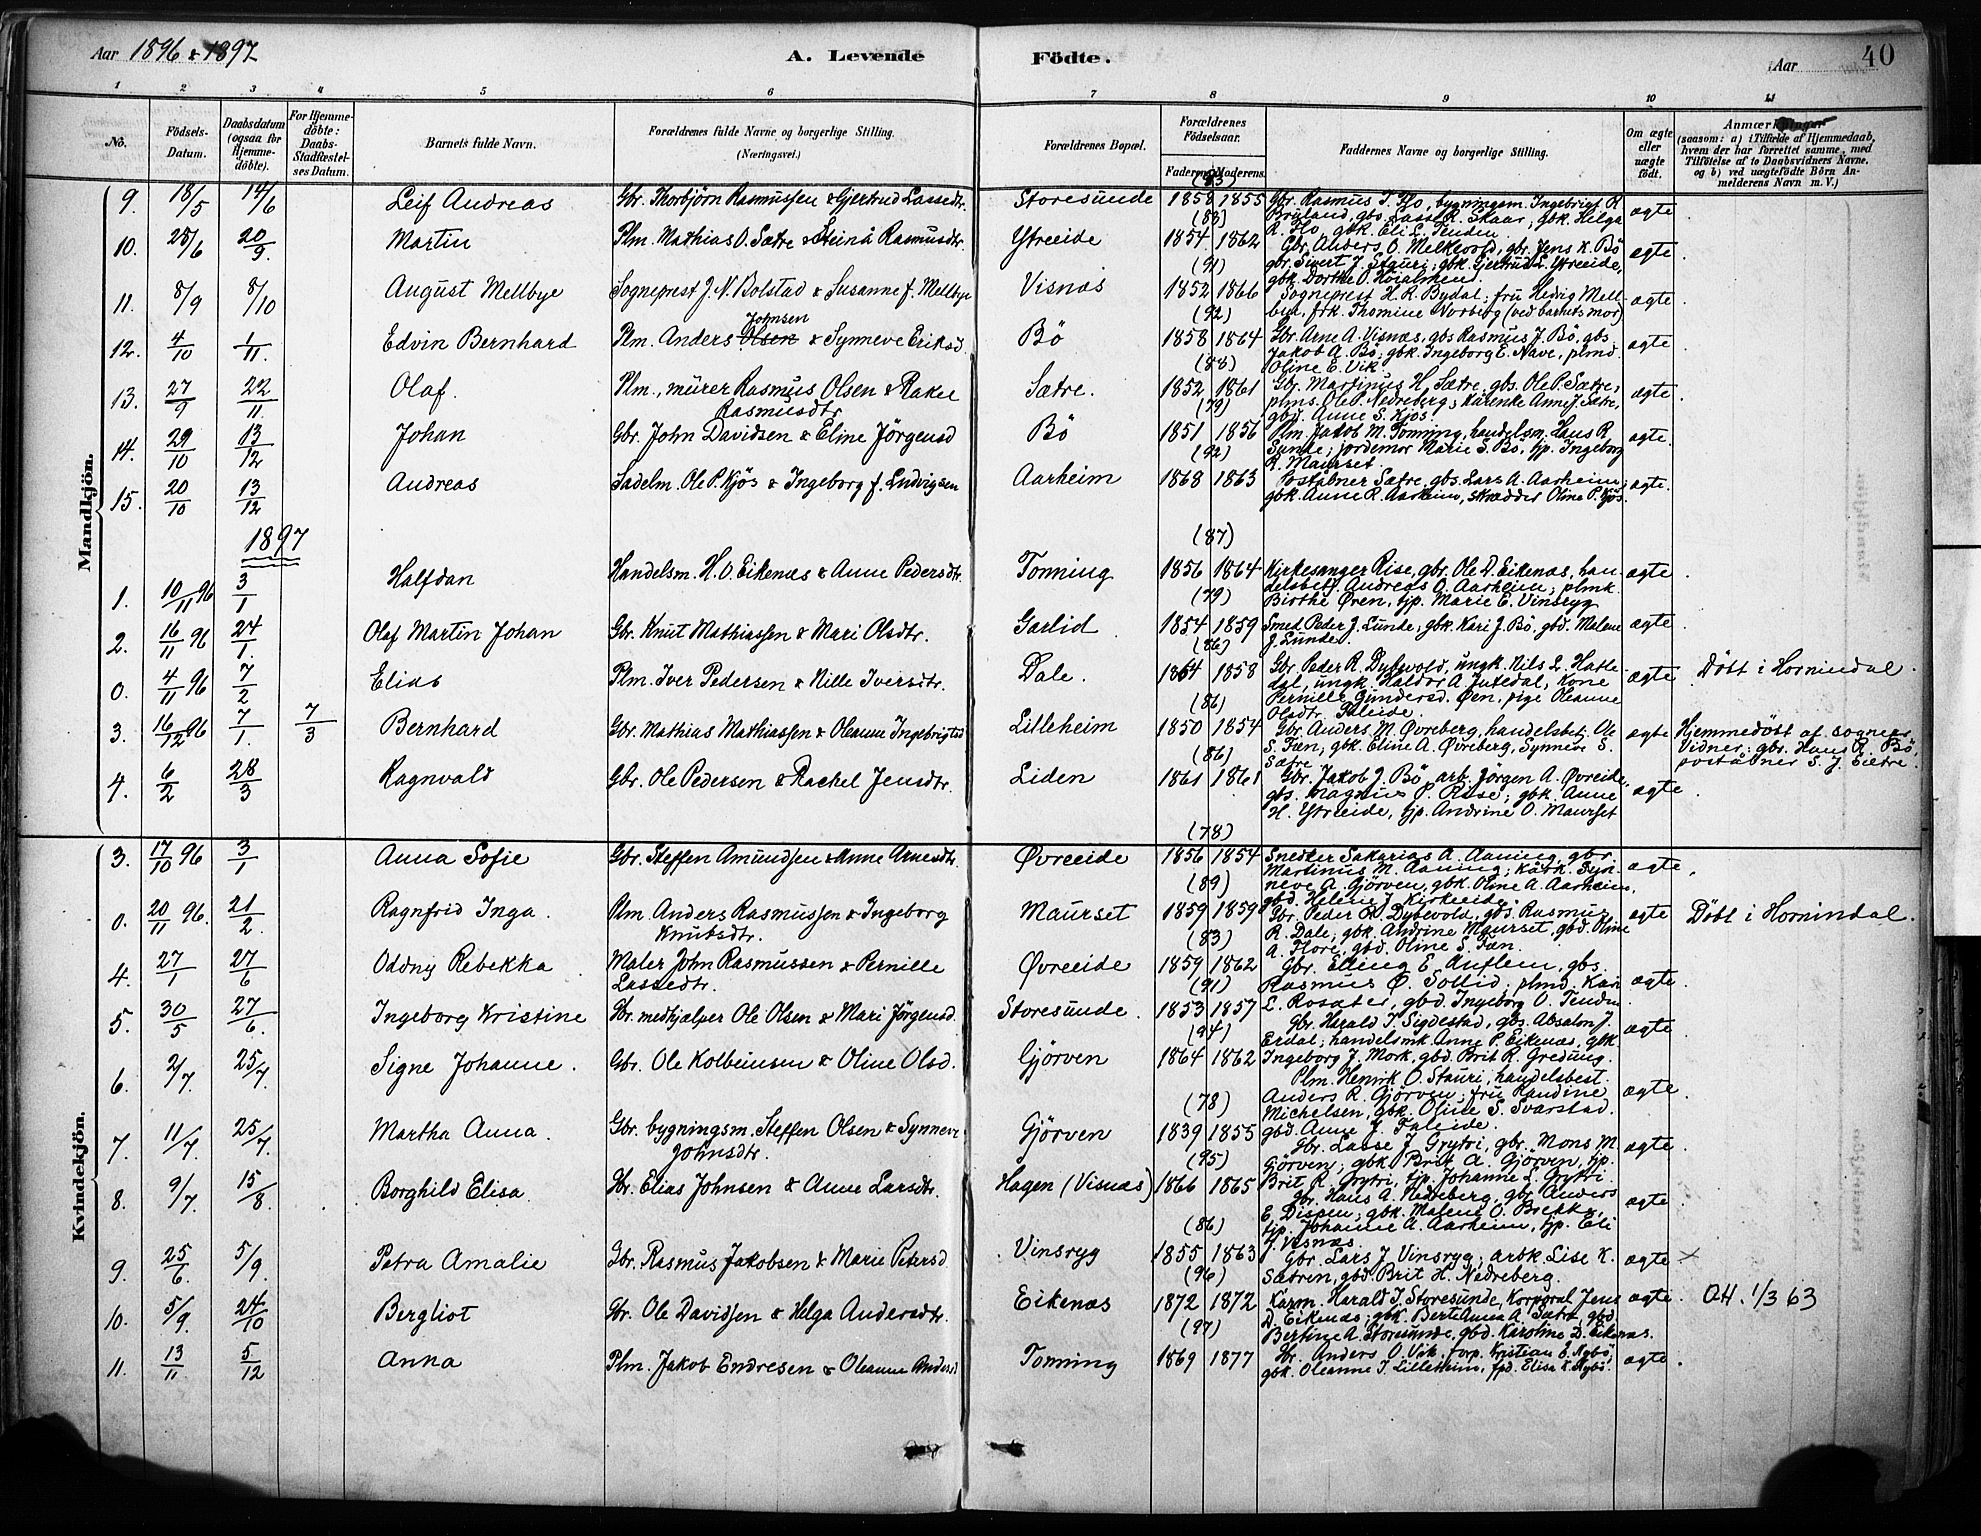 Aar 1896 & 1897 A. Levende Födte. Aar 40
1 2 3 4 5 6 7 8 9 10 11
No. Födsels-Datum. Daabsdatum (ogsaa for Hjemme-döbte). For Hjemme-döbte: Daabs-Stadfæstel-ses Datum. Barnets fulde Navn. Forældrenes fulde Navne og borgerlige Stilling. (Næringsvei.) Forældrenes Bopæl. Forældrenes Födselsaar. Faderens. Moderens. Faddernes Navne og borgerlige Stilling. Om ægte eller uægte födt. Anmærkninger (saasom: a) i Tilfælde af Hjemmedaab, hvem der har forrettet samme, med Tilföielse af to Daabsvidners Navne, og b) ved uægtefödte Börn Anmelderens Navn m. V.)
Mandkjön.
(83)
9. 18/5 14/6 Leif Andreas Gbr. Thorbjörn Rasmussen & Gjertrud Lassedtr. Storesunde 1858 1855 Gbr. Rasmus T. Flo, bygningsm. Ingebrigt R.
Bryland, gbs. Lasse R. Skaar, gbk. Helga
R. Flo, gbk. Eli L. Tenden. ægte
(83)
10. 28/6 20/9 Martin Plm. Mathias O. Sætre & Steinå Rasmusdtr. Ytreeide 1854 1862 Gbr. Anders O. Melkevold, gbr. Jens K. Bö
gbr. Sivert J. Stauri; gbk. Gjertrud L. Ytreeide,
gbk. Dorthe O. Hoialmen. ægte
(91)
11. 8/9 8/10 August Mellbye Sogneprest J. N. Bolstad & Susanne f. Mellbye Visnæs 1852 1866 Sogneprest H. R. Bydal; fru Hedvig Mell-
bye, frk. Thomine Norberg (ved barnets mor) ægte
(92)
12. 4/10 1/11. Edvin Bernhard Plm. Anders Olsen Johnsen & Synneve Eriksd. Bö 1858 1864 Gbr. Arne A. Visnæs, gbs Rasmus J. Bö, gbs.
Jakob A. Bö; gbk. Ingeborg E. Nave, plmd.
Oline E. Vik ægte
(88)
13. 27/9 22/11. Olaf. Plm., mürer Rasmus Olsen & Rakel
Rasmusdtr Sætre. 1852 1861 Gbr. Martinus H. Sætre, gbs. Ole P. Sætre,
plms. Ole P. Nedreberg; kårenke Anne J. Sætre,
gbd. Anne S. Kjös. ægte
(79)
14. 29/10 13/12 Johan Gbr. John Davidsen & Eline Jörgensd Bö 1851 1856 Plm. Jakob M. Tonning, handelsm. Hans R.
Sunde; jordemor Marie S. Bö, tjp. Ingeborg
R. Maurset. ægte.
(92)
15. 20/10 13/12 Andreas Sadelm. Ole P. Kjös & Ingeborg f. Ludvigsen Aarheim 1868 1863 Poståbner Sætre, gbs. Lars A. Aarheim;
gbk. Anne R. Aarheim, skrædder Oline P. Kjös. ægte.
1897
(87)
1. 10/11 96 3/1 Halfdan Handelsm. H. O. Eikenæs & Anne Pedersdtr. Tonning 1856 1864 Kirkesanger Rise, gbr. Ole D. Eikenæs, han-
delsbetj. Andreas O. Aarheim; plmk
Birthe Øren, tjp. Marie E. Vinsryg ægte
(79)
2. 16/11 96 24/1. Olaf Martin Johan Gbr. Knut Mathiassen & Mari Olsdtr. Garlid 1854 1859 Smed Peder J. Lunde, gbk. Kari J. Bö, gbd. Malene
J. Lunde. ægte
(86)
0. 4/11 96 7/2 Elias Plm. Iver Pedersen & Nille Iversdtr. Dale. 1864 1858 Gbr. Peder R. Dybevold, ungk. Nils L. Hatle-
dal, ungk. Haldor A. Jutedal, kone
Pernille Gundersd. Øen, pige Oleanne
Olsdtr. Faleide. ægte Döbt i Hornindal.
(86)
3. 16/12 96 7/1. 7/3 Bernhard Gbr. Mathias Mathiassen & Oleanne Ingebrigtsd Lilleheim 1850 1854 Gbr. Anders M. Øvreberg, handelsbetj. Ole
S. Fæn; gbk. Eline A. Øvreberg, Synneve S.
Sætre. ægte Hjemmedöbt af sognepr.
Vidner: gbr. Hans R. Bö,
poståbner S. J. Sætre.
(86)
4. 6/2 28/3 Ragnvald Gbr. Ole Pedersen & Rachel Jensdtr. Liden 1861 1861 Gbr. Jakob J. Bö, arb. Jörgen A. Øvreeide,
gbs. Magnus P. Rise; gbk. Anne
H. Ytreeide, tjp. Andrine O. Maurset ægte.
Kvindekjön.
(78)
3. 17/10 96 3/1 Anna Sofie Gbr. Steffen Amundsen & Anne Arnesdtr. Øvreeide 1856 1854 Snedker Sakarias A. Aaning, gbr.
Martinus M. Aaning; kårk. Syn-
neve A. Gjörven, gbk. Oline A. Aarheim,
gbd. Helene J. Kirkeeide. ægte.
(89)
0. 20/11 96. 21/2. Ragnfrid Inga. Plm. Anders Rasmussen & Ingeborg
Knutsdtr. Maurset 1859 1859 Gbr. Peder R. Dybevold, gbs. Rasmus
R. Dale; gbk. Andrine Maurset, gbd. Oline
A. Flore, gbd. Oline S. Fæn. ægte Döbt i Hornindal.
(83)
4. 27/1 27/6 Oddny Rebekka Maler John Rasmussen & Pernille
Lassedtr. Øvreeide 1859 1862 Gbr. Elling E. Auflem, gbs.
Rasmus Ø. Sollid; plmd. Kari
L. Rosæter, gbd. Ingeborg O. Tenden. ægte.
(91)
5. 30/5 27/6. Ingeborg Kristine Gbr. medhjælper Ole Olsen & Mari Jörgensd. Storesunde. 1853 1857 Gbr. Harald T. Sigdestad, gbs. Absalon J.
Erdal; handelsmk. Anne P. Eikenæs, gbk.
Ingeborg J. Mork, gbd. Brit R. Gredung. ægte
(94)
6. 2/7. 25/7 Signe Johanne. Gbr. Ole Kolbeinsen & Oline Olsd. Gjörven 1864 1862 Plm. Henrik O. Stauri, handelsbest.
Anders R. Gjörven; fru Randine
Michelsen, gbk. Oline S. Svarstad.
gbd. Anne J. Faleide. ægte.
(78)
7. 11/7. 25/7. Martha Anna. Gbr. bygningsm. Steffen Olsen & Synneve
Johnsdtr. Gjörven 1839 1855 Gbr. Lasse J. Grytri, gbr. Mons M.
Gjörven; gbk. Brit A. Gjörven, tjp.
Brit R. Grytri, tjp. Johanne L. Grytri. ægte
(95)
8. 9/7 15/8. Borghild Elisa. Gbr. Elias Johnsen & Anne Larsdtr. Hagen (Visnæs) 1866 1865 Gbr. Hans A. Nedreberg, gbr. Anders
E. Dispen; gbk. Malene O. Brekke,
tjp. Johanne A. Aarheim, tjp. Eli
J. Visnæs. ægte
(86)
9. 25/6. 5/9. Petra Amalie Gbr. Rasmus Jakobsen & Marie Petersd Vinsryg 1855 1863 Gbr. Lars J. Vinsryg; arbk Lise K.
Sætren, gbd. Brit H. Nedreberg. ægte ×
(96)
10. 5/9. 24/10 Bergliot Gbr. Ole Davidsen & Helga Andersdtr. Eikenæs 1872 1872 Kårm. Harald T. Storesunde, Korporal Jens
D. Eikenæs; gbk. Berte Anna A. Sætre, gbd.
Bertine A. Storesunde, gbd. Karoline D. Eikenæs. ægte. OH. 1/3 63
(97)
11. 13/11 5/12 Anna Plm. Jakob Endresen & Oleanne Andersd Tonning 1869 1877 Gbr. Anders O. Vik, forp. Kristian E. Nybö,
gbk. Oleanne T. Lilleheim, fpd. Elisa K. Nybö. ægte.